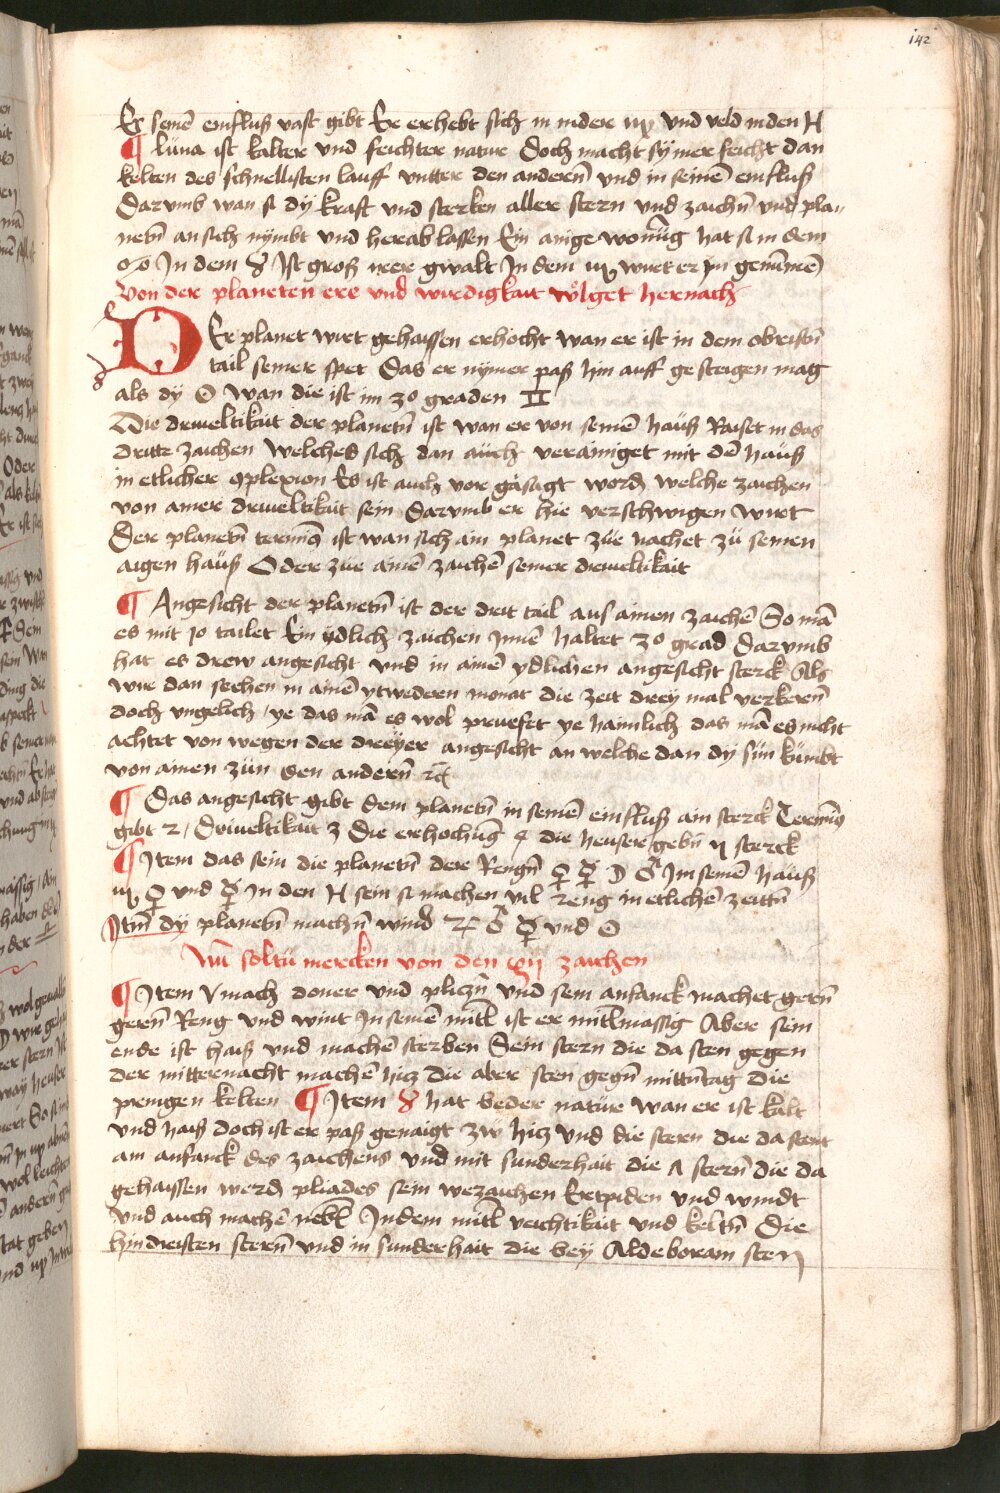 142
Er seinē einfluß vast gibt Er erhebt sich in nidere ♍ vnd veld in den ♓
¶ Lüna ist kalter vnd feichter natur Doch macht sÿ mer feicht dan
kelten des schnellisten lauff vntter den anderñ vnd in seinē einfluß
Darvmb wan si dÿ kraft vnd sterken aller stern vnd zaichñ vnd pla
netñ an sich nÿmbt vnd herab lassen Ein ainige wonūg hat si in dem
♋ In dem ♉ Ist groß irer gwalt In dem ♏ wirt er in genūmē
Von der planeten ere vnd wirdigkait volget hernach
DEr planet wirt gehaissen erhocht wan er ist in dem obristñ
tail seiner sper Das er nÿmer paß hin auff gesteigen mag
als dÿ ☉ wan die ist im 30 graden ♊
Die driueltikait der planetñ ist wan er von seinē hauß Raiset in das
dritte zaichen welches sich dan auch verainiget mit dē hauß
in etlicher 9plexion Es ist auch vor gesagt word welche zaichen
von ainer driueltikait sein Darvmb er hie verschwigen wirt
Der planetñ terminꝰ ist wan sich ain planet züe nachet zü seinen
aigen hauß Oder züe ainē zaichē seiner driueltikait
¶ Angesicht der planetñ ist der drit tail aus ainen zaichē So mā
es mit 10 tailet Ein ÿdlich zaichen innē haltet 30 grad Darvmb
hat es drew angesicht vnd in ainē ÿdlichen angesicht sterck Als
wir dan sechen in ainē ytwederen monat die zeit dreÿ mal verkerñ
doch vngelich ye das mā es wol pruefet ye hainlich das mā es nicht
achtet von wegen der dreÿer angesicht an welche dan dÿ sün kümbt
von ainen zün den anderñ ꝛc̄
¶ Das angesicht gibt dem planetñ in seinē einfluß ain sterck Terminꝰ
gibt 2 / Driueltikait 3 Die erhochūg 4 die heuser gebñ 5 sterck
¶ Item das sein die planetñ dere Rengñ ♀ ☿ ☽ ♂ Im seinē hauß
♍ ♀ vnd ☿ In den ♓ sein si machen vil reng in etlichē zeittñ
Itm̄ dÿ planetñ machñ wind ♃ ♂ ☿ vnd ☉
Nū soltü mercken von den xij zaichen
¶ Item ♈ mach doner vnd pliczñ vnd sein anfanck machet gerñ
gerñ Reng vnd wint In seinē mitl ist er mitlmassig Aber sein
ende ist haiß vnd machē sterben Sein stern die da sten gegen
der mitternacht machē hicz die aber sten gegñ mittñtag die
prengen kelten ¶ Item ♉ hat beder natüre wan er ist kalt
vnd haiß doch ist er paß genaigt zw hicz vnd die stern die da stent
am anfanck des zaichens vnd mit sunderhait die 7 sterñ die da
gehaissen werd pliades sein wezaichen Ertpiden vnd windt
vnd auch machē nebl In dem mitl veichtikait vnd keltñ Die
hindristen sterñ vnd in sunderhait die bey Aldeboram sten